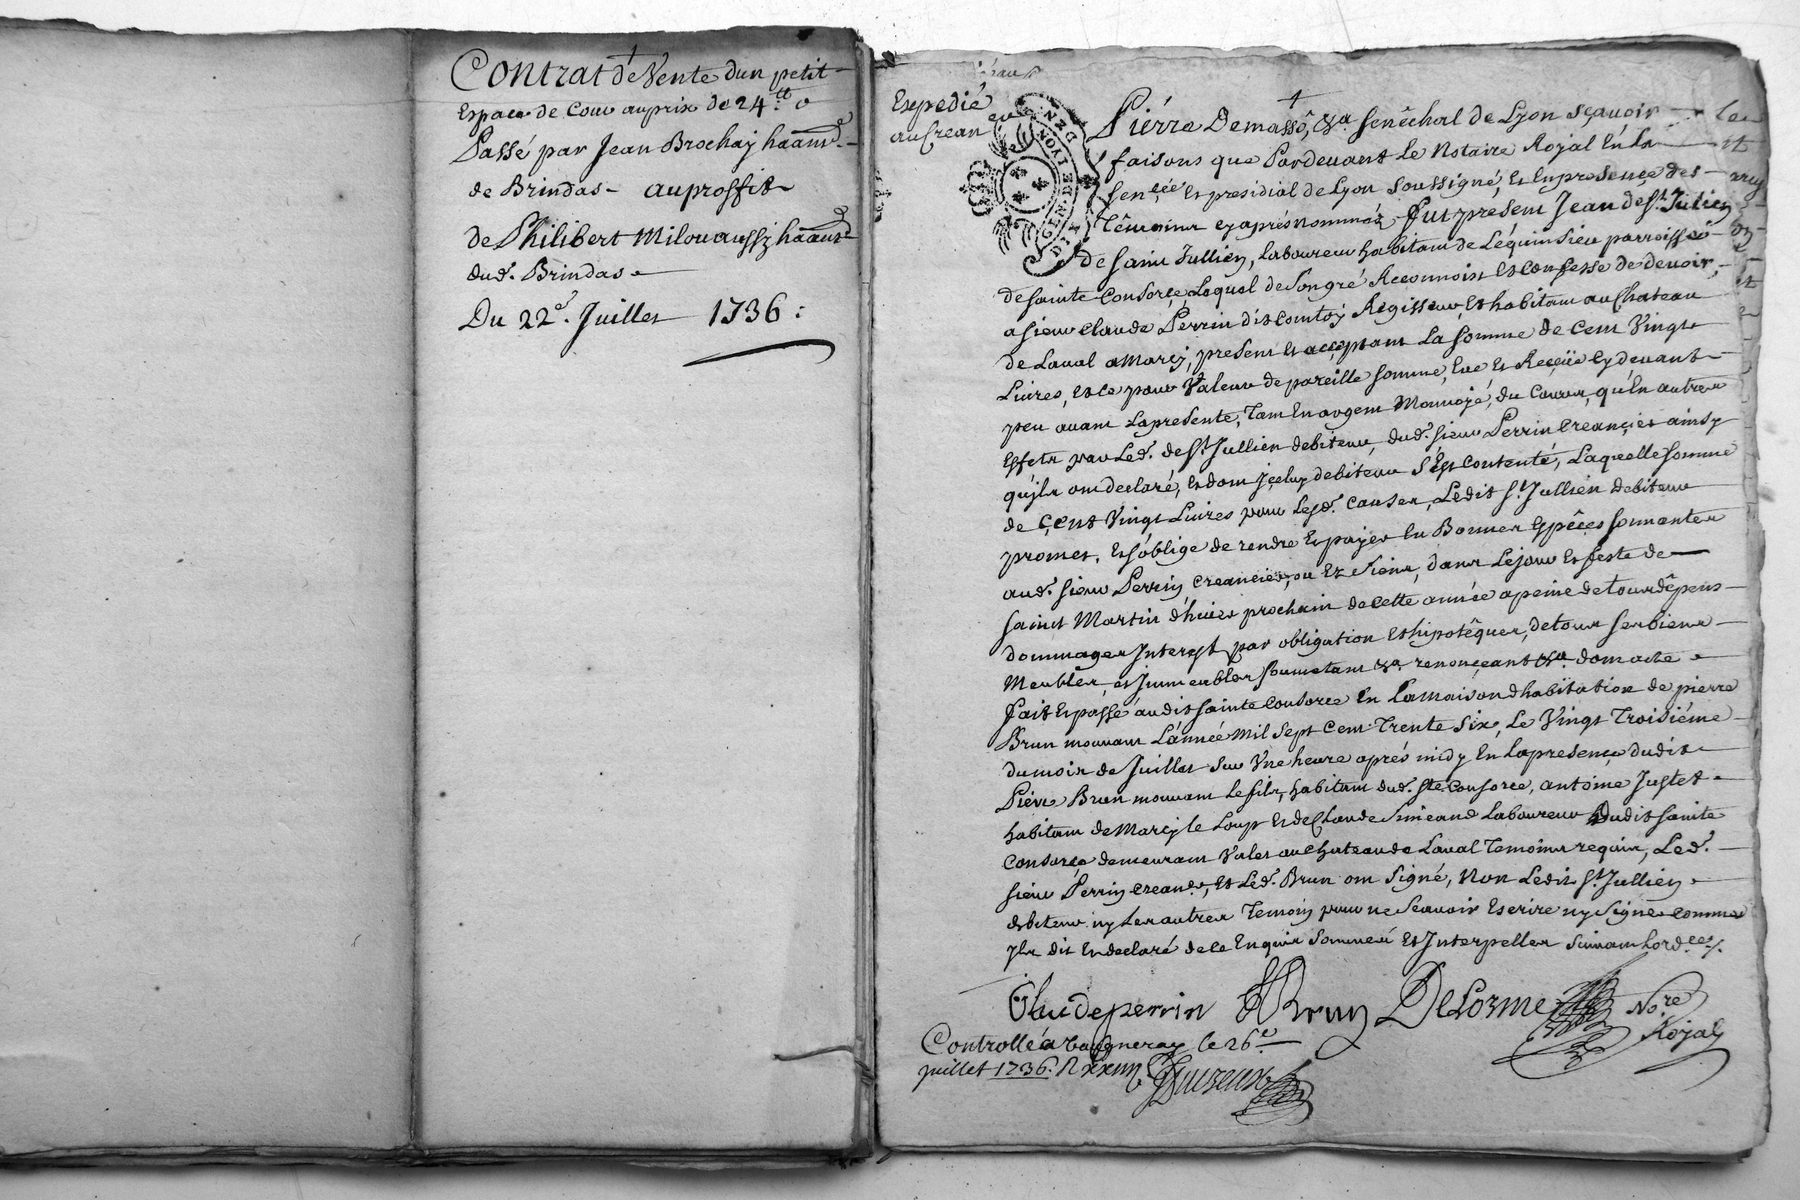 Contrat de Vente dun petit
Espace de Cour au prix de 24.tt
Passé par Jean Brochaÿ haant
de Brindas auproffit
de Philibert Milou aussy haant
dud. Brindas
Du 22e. Juillet 1736 :
Expedié
au Crean er
GEN. DE LYON
Piérre Demassó, &a. senéchal de Lyon sçavoir
faisons que Pardevant Le Notaire Royal En La
sencée et presidial de Lyon soussigné, et En presence des
témoins cy aprés nommez fut present Jean de st. Julien
de saint Jullien, Laboureur habitant de Léquinsieu parroisse
de sainte Consorce Lequel de son gré Reconnoist et confesse de devoir,
a sieur Claude Perrin dit Comtoy Regisseur, et habitant au Chateau
de Laval a Marcy, present et acceptant La somme de Cent Vingt
Livres, et ce pour Valeur de pareille somme, Eue et Reçeüe cy devant
peu avant La presente, Tant En argent Monnoyé, du Cours, qu'En autres
Effets par Led. de st Jullien debiteur, dud. sieur Perrin Creançier ainsy
qu'jls ont declaré, et dont jçeluy debiteur s'Est contenté, Laquelle somme
de Çent Vingt Livres pour Lesd. causes, Ledit st. Jullien debiteur
promet, Et s'oblige de rendre Et payer En Bonnes Espêçes sonnantes
aud. sieur Perrin Creancier, ou Ez siens, dans Le jour Et feste de
saint Martin d'hiver prochain de Cette année a peine de tous dêpens
dommages Interest par obligation Et hipotêques, de tous ses biens
Meubles, et Immeubles soumetant &a. renonçeant &a. dont acte
fait Et passé audit sainte Consorce En La maison d'habitation de pierre
Brun mouvant L'année Mil sept Cent Trente Six, Le Vingt Troisiéme
du mois de Juillet sur Vne heure aprés midy En La presence dudit
Piérre Brun mouvant Le fils, habitant dud. ste. Consorce, antoine Justet
habitant de Marcy le Loup Et de Claude Simeand Laboureur dudit sainte
Consorce demeurant Valet au Chateau de Laval Temoins requis, Led.
sieur Perrin creancr., Et Led. Brun ont signé, Non Ledit st. Jullien
debiteur ny Les autres Temoin pour ne scavoir Escrire ny signer comme
jls dit Et declaré de ce Enquis sommé Et Interpellés suivant Lord.ces
Claude perrin Brun DeLorme No.re
Royal
Controllé a Vaugneray le 26.e
juillet 1736.